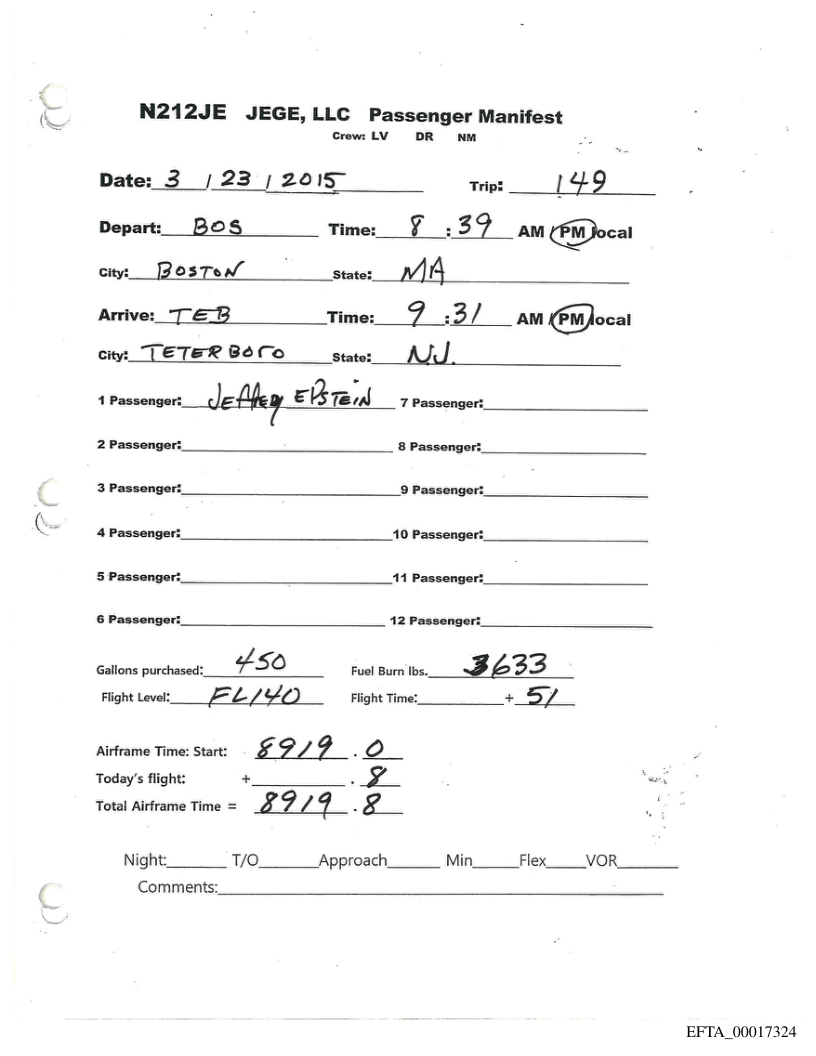 N212JE JEGE, LLC Passenger Manifest
Crew: LV DR NM
Date: 3 / 23 / 2015 Trip: 149
Depart: BOS Time: 8 : 39 AM / PM local
City: BOSTON State: MA
Arrive: TEB Time: 9 : 31 AM / PM local
City: TETERBORO State: NJ.
1 Passenger: JEFFREY EPSTEIN 7 Passenger:
2 Passenger: 8 Passenger:
3 Passenger: 9 Passenger:
4 Passenger: 10 Passenger:
5 Passenger: 11 Passenger:
6 Passenger: 12 Passenger:
Gallons purchased: 450 Fuel Burn lbs. 3633
Flight Level: FL140 Flight Time: + 51
Airframe Time: Start: 8919 . 0
Today's flight: + . 8
Total Airframe Time = 8919 . 8
Night: T/O Approach Min Flex VOR
Comments:
EFTA_00017324